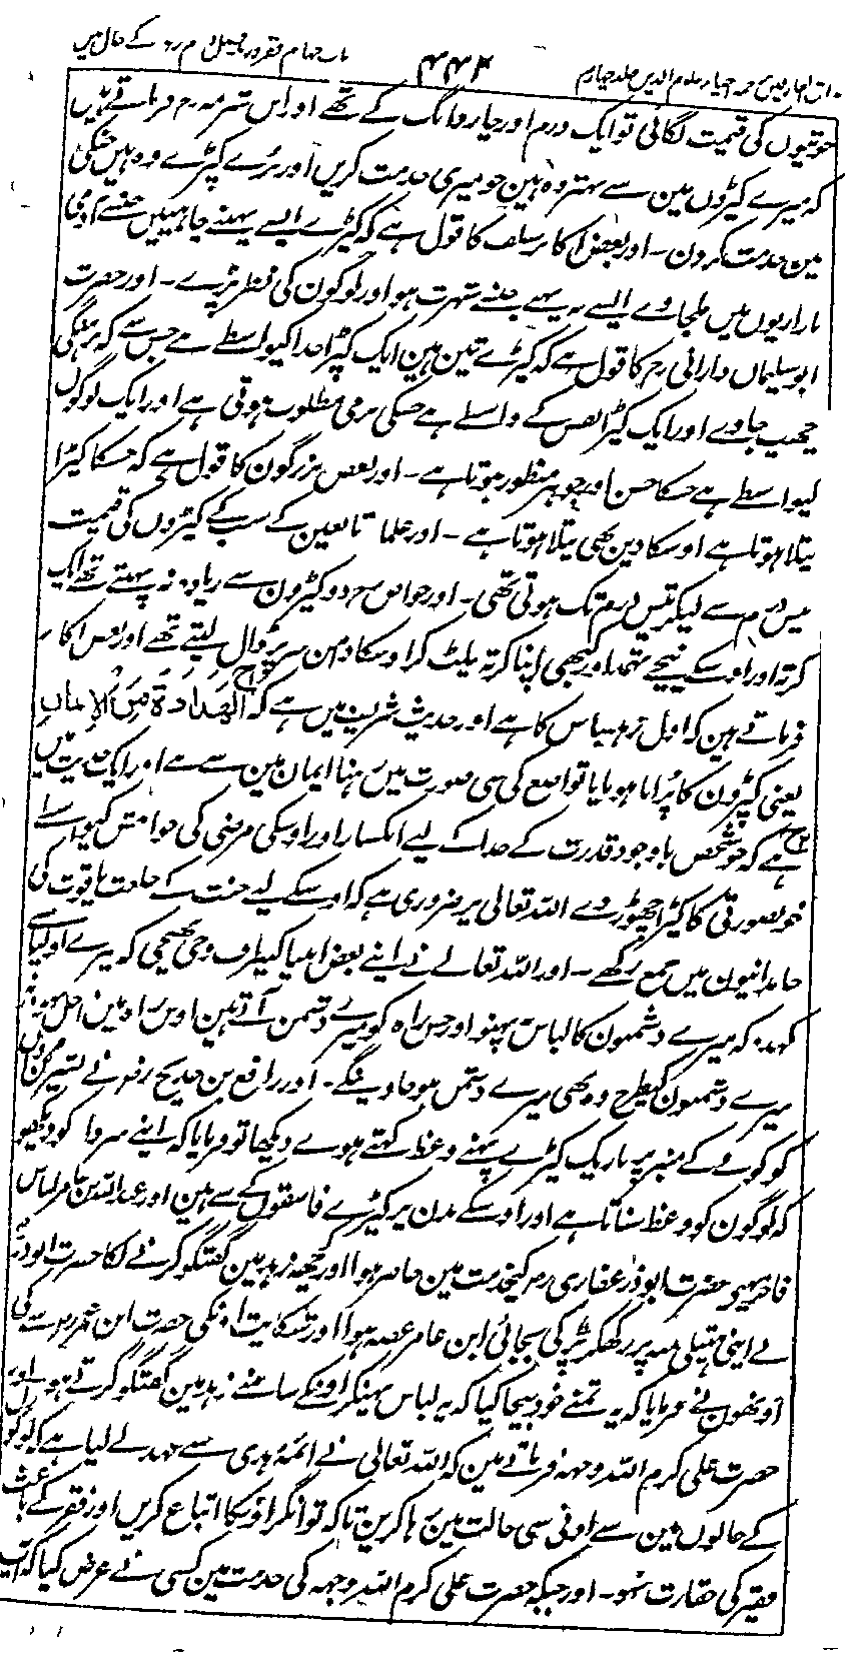 باب چہارم فقر و زہد فصل دوم زہد کے حال میں
۴۴۲
مذاق العارفین ترجمہ احیاء علوم الدین جلد چہارم
جوتیوں کی قیمت لگائی تو ایک درم اور چار دانگ کے تھے اور اس شرمہ رم فرماتے ہیں
کہ میرے کپڑوں مین سے بہتر وہ ہین جو میری خدمت کریں اور بُرے کپڑے وہ ہیں جنکی
مین خدمت کرون ۔ اور بعض اکابر سلف کا قول ہے کہ کپڑے ایسے پہننے چاہییں جنسے آدمی
بازاریوں میں ملجاوے ایسے نہ پہنے جنسے شہرت ہو اور لوگون کی نظر پڑے ۔ اور حضرت
ابو سلیمان دارانی رح کا قول ہے کہ کپڑے تین ہین ایک کپڑا خدا کیواسطے ہے جس سے کہ برہنگی
چھپ جاوے اور ایک کپڑا نفس کے واسطے ہے جسکی نرمی مطلوب ہوتی ہے اور ایک لوگوں
کیواسطے ہے جسکا حسن اور جوہر منظور ہوتا ہے ۔ اور بعض بزرگون کا قول ہے کہ جسکا کپڑا
پتلا ہوتا ہے اوسکا دین بھی پتلا ہوتا ہے ۔ اور علما تابعین کے سب کے کپڑوں کی قیمت
بیس درم سے لیکر تیس درم تک ہوتی تھی ۔ اور خواص رح دو کپڑون سے زیادہ نہ پہنتے تھے ایک
کرتہ اور اوسکے نیچے تہمد اور کبھی اپنا کرتہ پلٹ کر اوسکا دامن سر پر ڈال لیتے تھے اور بعض اکابر
فرماتے ہین کہ اول زہد لباس کا ہے اور حدیث شریف میں ہے کہ اَلْبَذَاذَۃُ مِنَ الْاِیْمَانِ
یعنی کپڑون کا پُرانا ہونا یا تواضع کی سی صورت میں رہنا ایمان مین سے ہے اور ایک حدیث میں
ہے کہ جو شخص باوجود قدرت کے خدا کے لیے انکسار اور اوسکی مرضی کی خواہش کیواسطے
خوبصورتی کا کپڑا چھوڑ دے اللہ تعالی پر ضروری ہے کہ اوسکے لیے جنت کے خلعت یاقوت کی
جامدانیون میں جمع رکھے ۔ اور اللہ تعالے نے اپنے بعض انبیا کیطرف وحی بھیجی کہ میرے اولیا سے
کہدو کہ میرے دشمنون کا لباس نہ پہنو اور جس راہ کو میرے دشمن آتے ہین اوس راہ مین داخل نہوں نہ
میرے دشمنون کیطرح وہ بھی میرے دشمن ہو جاوینگے ۔ اور رافع بن خدیج رض نے بشیر بن مروان
کو کوفے کے منبر پر باریک کپڑے پہنے وعظ کہتے ہوے دیکھا تو فرمایا کہ اپنے سردار کو دیکھو
کہ لوگون کو وعظ سناتا ہے اور اوسکے بدن پر کپڑے فاسقون کے سے ہین اور عبداللہ بن عامر لباس
فاخر پہنے حضرت ابوذر غفاری رض کیخدمت مین حاضر ہوا اور کچھ زہد مین گفتگو کرنے لگا حضرت ابوذر رض
نے اپنی ہتیلی منہ پر رکھکر پڑ کی بجائی ابن عامر غصہ ہوا اور شکایت اونکی حضرت ابن عمر رض سے کی
اونھون نے فرمایا کہ یہ تمنے خود بیجا کیا کہ یہ لباس پہنکر اونکے سامنے زہد مین گفتگو کرتے ہو اور
حضرت علی کرم اللہ وجہہ فرماتے مین کہ اللہ تعالی نے ائمۂ ہدی سے عہد لے لیا ہے کہ لوگوں
کے حالون مین سے ادنی سی حالت مین رہا کرین تاکہ توانگر اونکا اتباع کریں اور فقر کے باعث
فقیر کی حقارت نہو ۔ اور جبکہ حضرت علی کرم اللہ وجہہ کی خدمت مین کسی نے عرض کیا کہ آپ